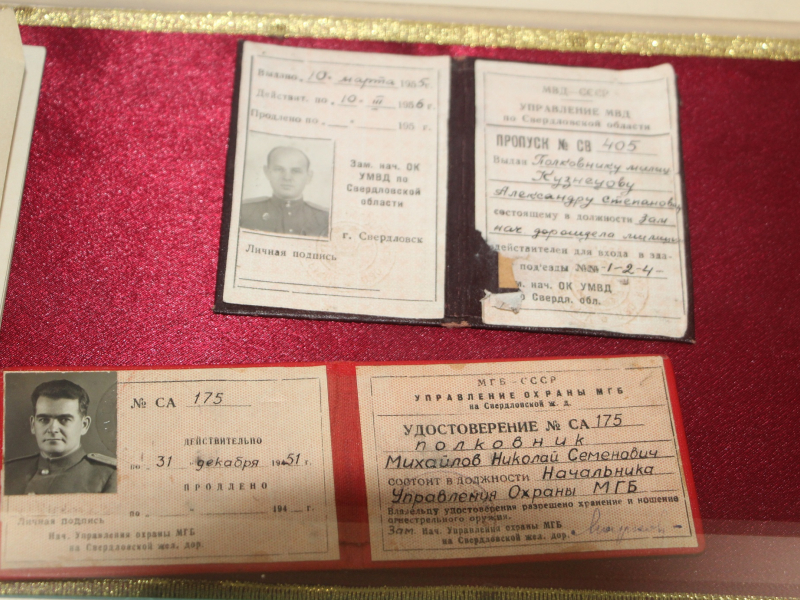 Выдано „10“ марта 1955г.
Действит. по „10“ III 1956г.
Продлено по „ “ 195 г.
Зам. нач. ОК
УМВД по
Свердловской
области
г. Свердловск
Личная подпись
МВД—СССР
УПРАВЛЕНИЕ МВД
по Свердловской области
ПРОПУСК № СВ 405
Выдан Полковнику милиц
Кузнецову
Александру Степанову
состоящему в должности Зам
нач дорождела милиц
действителен для входа в зда-
под'езды №№ -1-2-4-
нач. ОК УМВД
Свердл. обл.
№ СА 175
ДЕЙСТВИТЕЛЬНО
по „31“ декабря 1951г.
ПРОДЛЕНО
по „ “ 194 г.
Личная подпись
Нач. Управления охраны МГБ
на Свердловской жел. дор.
МГБ-СССР
УПРАВЛЕНИЕ ОХРАНЫ МГБ
на Свердловской ж. д.
УДОСТОВЕРЕНИЕ № СА 175
полковник
Михайлов Николай Семенович
состоит в должности Начальника
Управления Охраны МГБ
Владельцу удостоверения разрешено хранение и ношение
огнестрельного оружия.
Зам. Нач. Управления охраны МГБ
на Свердловской жел. дор.